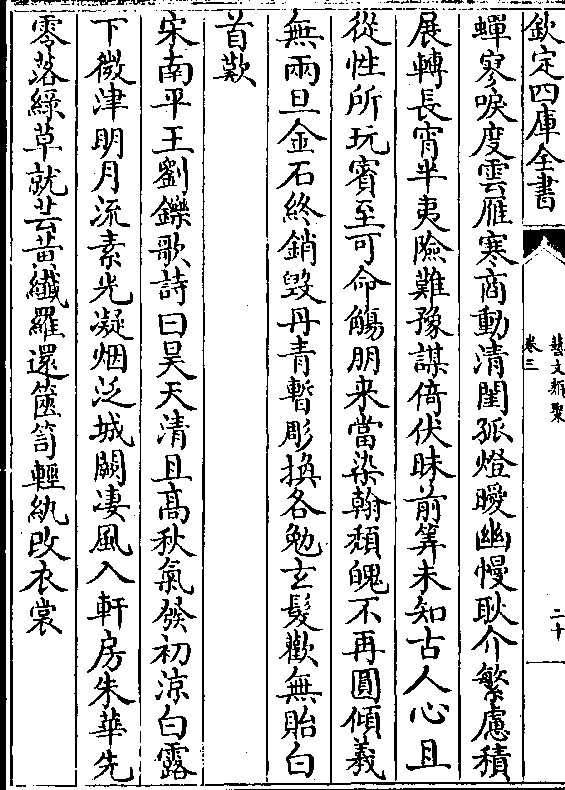 欽定四庫全書
藝文類聚
卷三
二十
蟬寥唳度雲雁寒商動清閨孤燈曖幽幔耿介繁慮積
展轉長宵半夷險難豫謀倚伏昧前筭未知古人心且
從性所玩賓至可命觴朋来當染翰頽魄不再圓傾羲
無兩旦金石終銷毀丹青暫彫換各勉玄髮歡無貽白
首歎
宋南平王劉鑠歌詩曰昊天清且髙秋氣發初涼白露
下微津明月流素光凝烟泛城闕淒風入軒房朱華先
零落綠草就芸黃纖羅還篋笥輕紈改衣裳